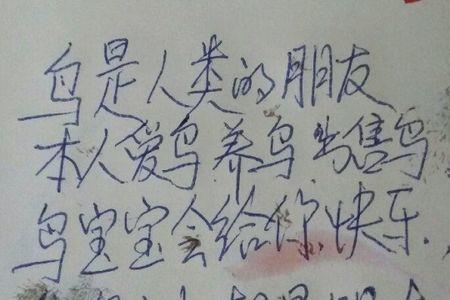 鸟是人类的朋友
本人爱鸟养鸟出售鸟
鸟宝宝会给你快乐.